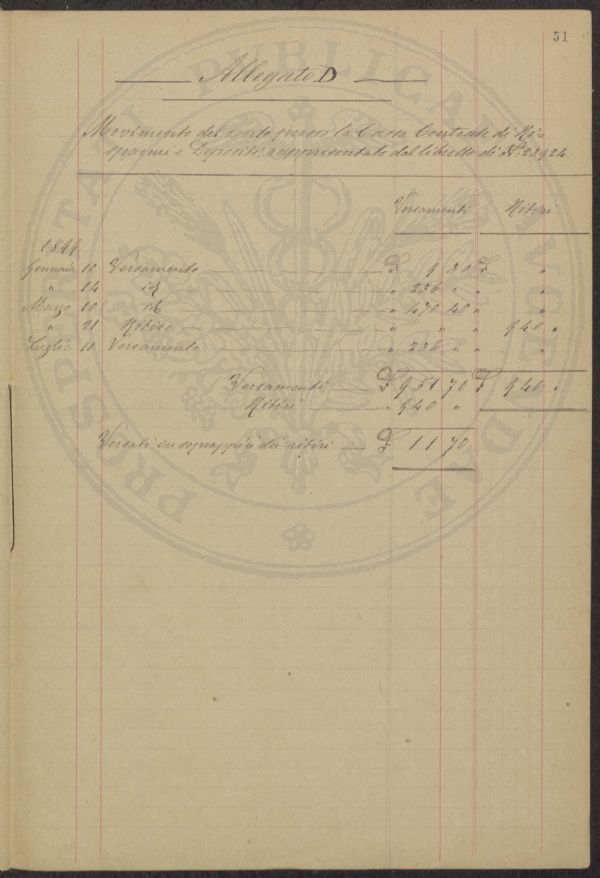 51
Allegato D
Movimento del conto presso la Cassa Centrale di Ri-
sparmi e Depositi, rappresentato dal libretto di N. 23924
Versamenti Ritiri
Gennaio 10 Versamento £ 9 30 £ "
" 14 id " 236 " " "
Marzo 10 id " 470 40 " "
" 21 Ritiro " " " " 940 "
Luglio 10 Versamento " 236 " " "
Versamenti £ 951 70 £ 940 "
Ritiri " 940 "
Versati in soprappiù dei ritiri £ 11 70
PROSPERITATI PUBLICAE AVGENDAE